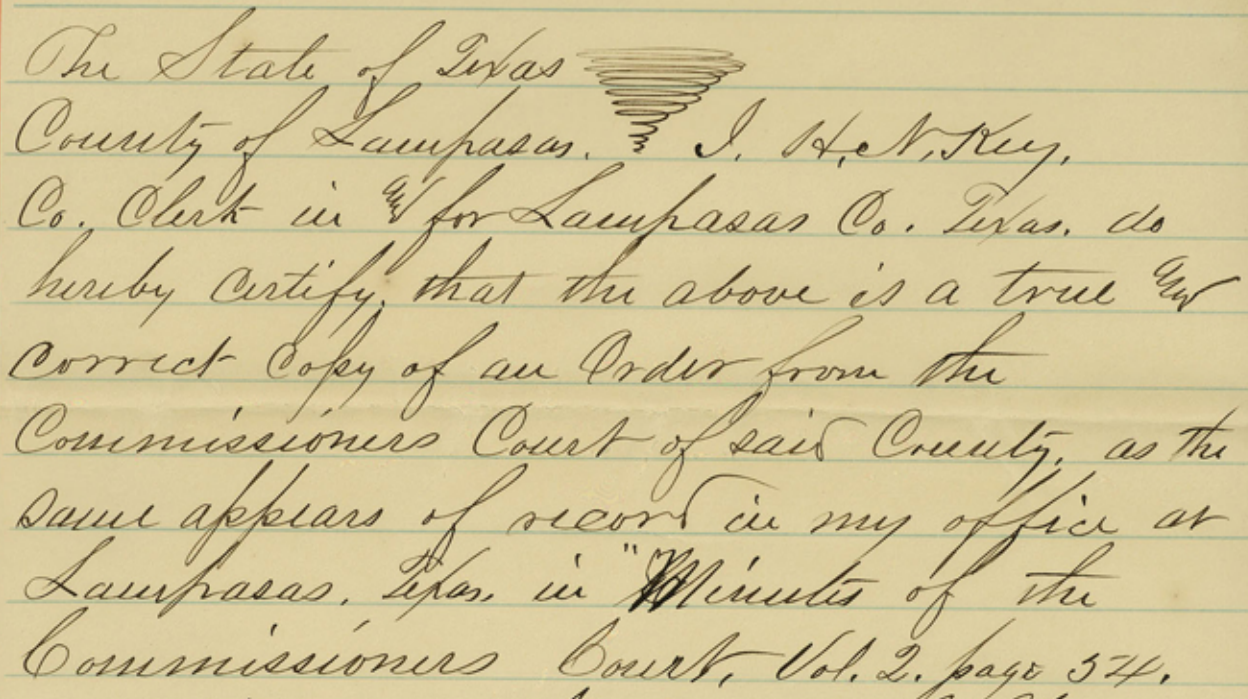 The State of Texas
County of Lampasas. I, H. N. Key,
Co. Clerk in and for Lampasas Co. Texas. do
hereby certify, that the above is a true and
correct copy of an Order from the
Commissioners Court of said County, as the
same appears of record in my office at
Lampasas, Texas, in "Minutes of the
Commissioners Court, Vol. 2. page 54.